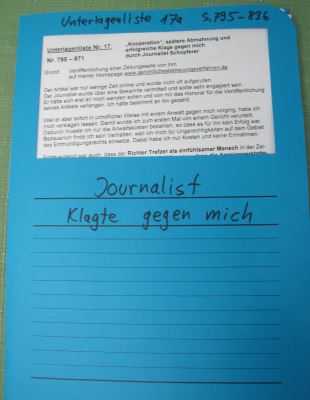 Unterlagenliste 17a S. 795-836
Unterlagenliste Nr. 17. „Kooperation", spätere Abmahnung und
Nr. 795 – 871 erfolgreiche Klage gegen mich
durch Journalist Schopferer
Grund: Veröffentlichung einer Zeitungsseite von ihm
auf meiner Homepage www.gerichtlichesbetreuungsverfahren.de
Der Artikel war nur wenige Zeit online und wurde nicht oft aufgerufen.
Der Journalist wurde über eine Bekannte vermittelt und sollte sehr engagiert sein.
Er hätte sich erst an mich wenden sollen und von mir das Honorar für die Veröffentlichung
seines Artikels verlangen. Ich hätte bestimmt an ihn gezahlt.
Weil er aber sofort in unhöflicher Weise mit einem Anwalt gegen mich vorging, habe ich
mich verklagen lassen. Damit wurde ich zum ersten Mal von einem Gericht verurteilt.
Dadurch musste ich nur die Anwaltskosten bezahlen, so dass es für ihn kein Erfolg war.
Bedauerlich finde ich sein Verhalten, weil ich mich für Ungerechtigkeiten auf dem Gebiet
des Entmündigungsrechts einsetze. Dabei habe ich nur Kosten und keine Einnahmen.
auch, dass der Richter Trefzer als einfühlsamer Mensch in der Zei-
Journalist
Klagte gegen mich